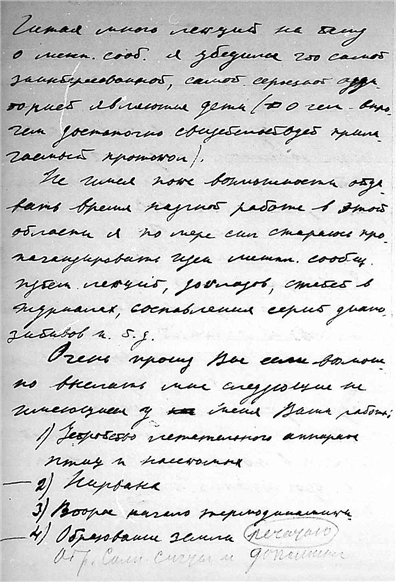 Читая много лекций на тему
о межпл. сооб. я убедился что самой
заинтересованной, самой серьезной ауди
торией являются дети (о чем впро
чем достаточно свидетельствует прила
гаемый протокол).
Не имея пока возможности отда
вать время научной работе в этой
области я по мере сил стараюсь про
пагандировать идеи межпл. сообщ.
путем лекций, докладов, статей в
журналах, составления серий диапо
зитивов и т. д.
Очень прошу Вас если возмож
но выслать мне следующие не
имеющиеся у меня Ваши работы:
1) Устройство летательного аппарата
птиц и насекомых
2) Нирвана
3) Второе начало термодинамики
4) Образование земли печатаю
Обр. Солн. сист. и дополнен